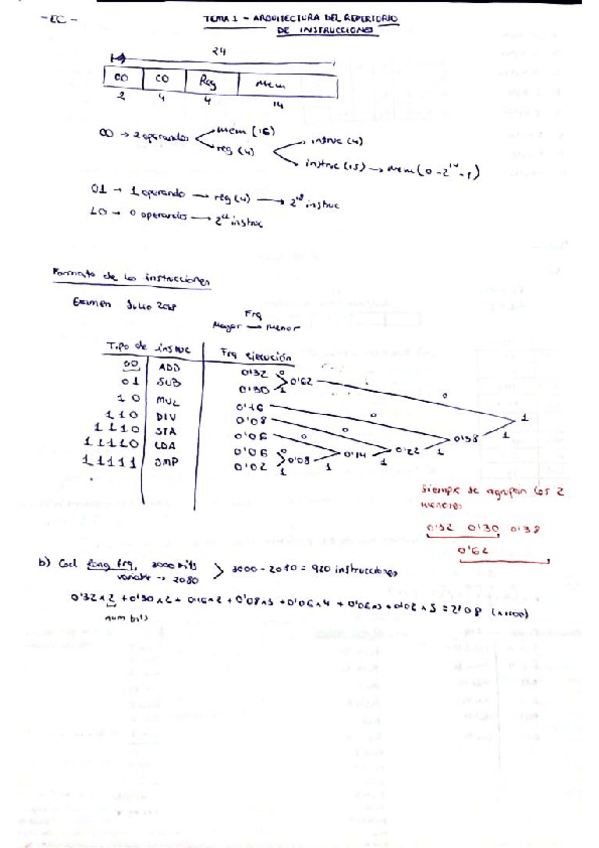 -EC-
TEMA 1 - ARQUITECTURA DEL REPERTORIO
DE INSTRUCCIONES
24
CO CO Reg Mem
2 4 4 14
00 → 2 operandos mem (16)
reg (4) instruc (4)
instruc (15) → mem (0 - 2^14 - 1)
01 → 1 operando → reg (4) → 2^nd instruc
10 → 0 operandos → instruc
Formato de las instrucciones
Examen Julio
Frq
Mayor → menor
Tipo de instruc Frq ejecución
00 ADD 0'32
01 SUB 0'30
0'62
10 MUL 0'16
110 DIV 0'08
1110 STA 0'06
11110 LDA 0'06
11111 JMP 0'02
0'08 0'14 0'22 0'38 1
Siempre se agrupan los 2
menores
0'32 0'30 0'38
0'62
b) Cod long frq. 3000 bits
variable → 2080
3000 - 2080 = 920 instrucciones
0'32 x 2 + 0'30 x 2 + 0'16 x 2 + 0'08 x 3 + 0'06 x 4 + 0'06 x 5 + 0'02 x 5 = 2'08 (x1000)
num bits